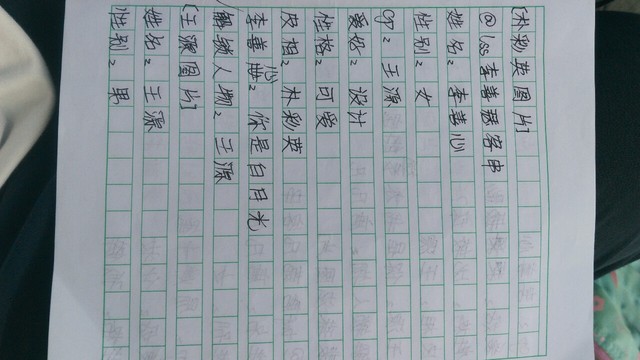 [朴彩英图片]
@Lss李善瑟客串
姓名：李善心
性别：女
cp：王源
爱好：设计
性格：可爱
皮相：朴彩英
李善心曲：你是白月光
解锁人物：王源
[王源图片]
姓名：王源
性别：男